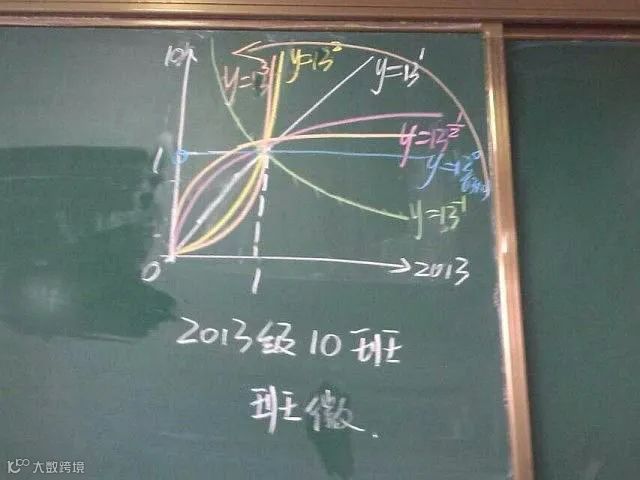 10
y=13³
y=13²
y=13¹
y=13^{1/2}
1
y=13⁰
y=13⁻¹
0
1
2013
2013级10班
班徽
大数跨境